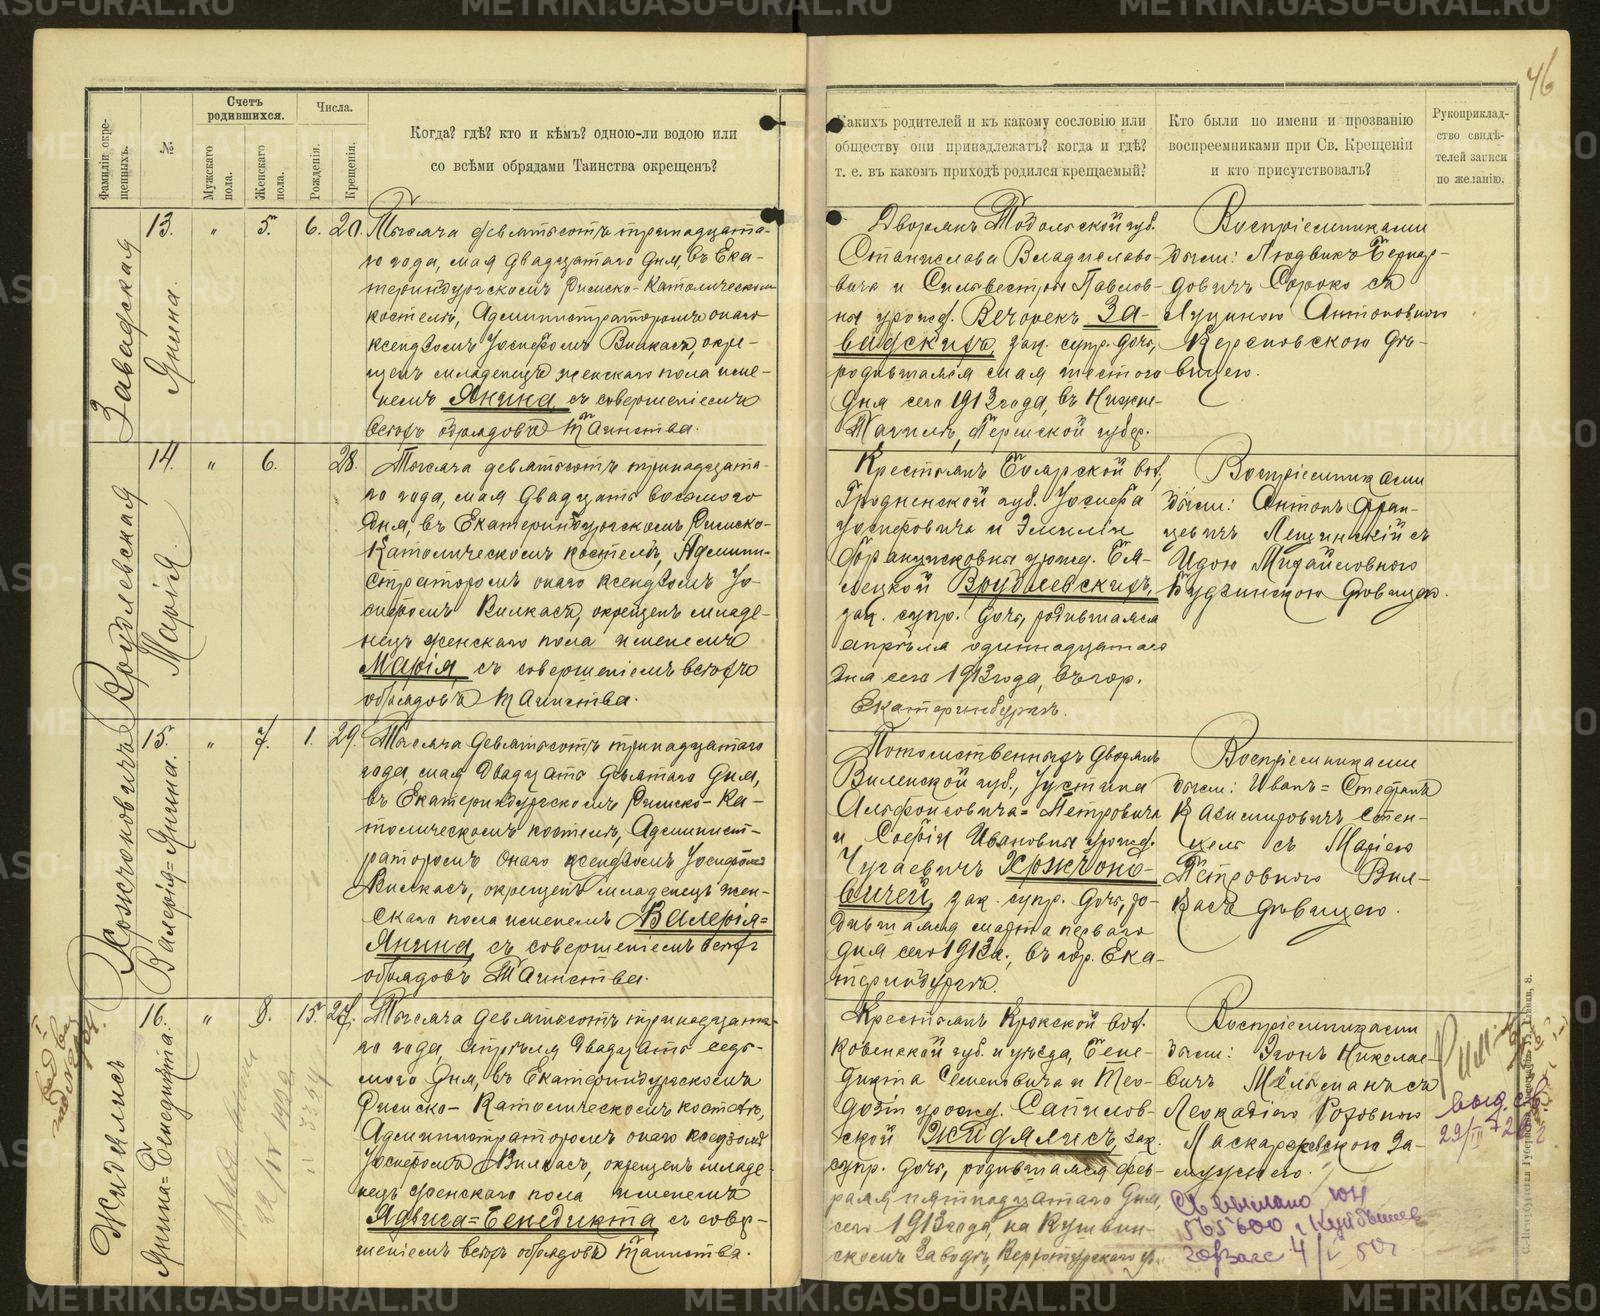 METRIKI.GASO-URAL.RU
46
Фамиліи окрещенныхъ.
№
Счетъ родившихся.
Мужскаго пола.
Женскаго пола.
Числа.
Рожденія.
Крещенія.
Когда? гдѣ? кто и кѣмъ? одною-ли водою или
со всѣми обрядами Таинства окрещенъ?
Какихъ родителей и къ какому сословію или
обществу они принадлежатъ? когда и гдѣ?
т. е. въ какомъ приходѣ родился крещаемый?
Кто были по имени и прозванію
воспреемниками при Св. Крещеніи
и кто присутствовалъ?
Рукоприклад-
ство свидѣ-
телей записи
по желанію.
Завадская
Янина.
13. " 5. 6. 20.
Тысяча девятьсотъ тринадцата-
го года, мая двадцатаго дня, въ Ека-
теринбургскомъ Римско-Католическомъ
костелѣ, Администраторомъ онаго
ксендзомъ Іосифомъ Вилкасъ, окре-
щенъ младенецъ женскаго пола име-
немъ Янина съ совершеніемъ
всѣхъ обрядовъ Таинства.
Дворянъ Подольской губ.
Станислава Владиславо-
вича и Сильвестры Павлов-
ны урожд. Вечорекъ За-
вадскихъ, зак. супр. дочь,
родившаяся мая шестого
дня сего 1913 года, въ Нижне-
Тагилѣ, Пермской губер.
Воспріемниками
были: Людвикъ
Сороко съ
Луциною Антоновною
дѣ-
вицею.
Врублевская
Марія.
14. " 6. 28.
Тысяча девятьсотъ тринадцата-
го года, мая двадцать восьмого
дня, въ Екатеринбургскомъ Римско-
Католическомъ костелѣ, Админи-
страторомъ онаго ксендзомъ Іо-
сифомъ Вилкасъ, окрещенъ младе-
нецъ женскаго пола именемъ
Марія съ совершеніемъ всѣхъ
обрядовъ Таинства.
Крестьянъ вол.,
Гродненской губ. Іосифа
Іосифовича и Эмиліи
Францисковны урожд.
Врублевскихъ,
зак. супр. дочь, родившаяся
апрѣля одиннадцатаго
дня сего 1913 года, въ гор.
Екатеринбургѣ.
Воспріемниками
были: Антонъ Фран-
цевичъ Лещинскій съ
Идою Михайловною
Будзинскою дѣвицею.
Хржчоновичъ
Валерія=Янина.
15. " 7. 1. 29.
Тысяча девятьсотъ тринадцатаго
года, мая двадцать девятаго дня,
въ Екатеринбургскомъ Римско-Ка-
толическомъ костелѣ, Админист-
раторомъ онаго ксендзомъ Іосифомъ
Вилкасъ, окрещенъ младенецъ жен-
скаго пола именемъ Валерія=
Янина съ совершеніемъ всѣхъ
обрядовъ Таинства.
Потомственныхъ дворянъ
Виленской губ., Іустина
Альфонсовича=Петровича
и Софіи Ивановны урожд.
Чугаевичъ Хржчоно-
вичей, зак. супр. дочь, ро-
дившаяся марта перваго
дня сего 1913 г., въ гор. Ека-
теринбургѣ.
Воспріемниками
были: Иванъ=Стефанъ
Казимировичъ Стен-
цель съ Маріею
Петровною Вил-
касъ дѣвицею.
Жидялисъ
Янина=Бенедикта.
16. " 8. 15. 27.
Тысяча девятьсотъ тринадцата-
го года, апрѣля двадцать седь-
мого дня, въ Екатеринбургскомъ
Римско-Католическомъ костелѣ,
Администраторомъ онаго ксендзомъ
Іосифомъ Вилкасъ, окрещенъ младе-
нецъ женскаго пола именемъ
Ядвига=Бенедикта съ совер-
шеніемъ всѣхъ обрядовъ Таинства.
Крестьянъ Крокской вол.
Ковенской губ. и уѣзда, Бене-
дикта Семеновича и Тео-
дозіи урожд.
Жидялисъ, зак.
супр. дочь, родившаяся фев-
раля пятнадцатаго дня,
сего 1913 года, на Кушвин-
скомъ Заводѣ, Верхотурскаго у.
Воспріемниками
были: Эгонъ Николае-
вичъ Мельманъ съ
Леокадіею
за-
мужнею.
выд. св.
565600 г. Куйбышев
горзагс